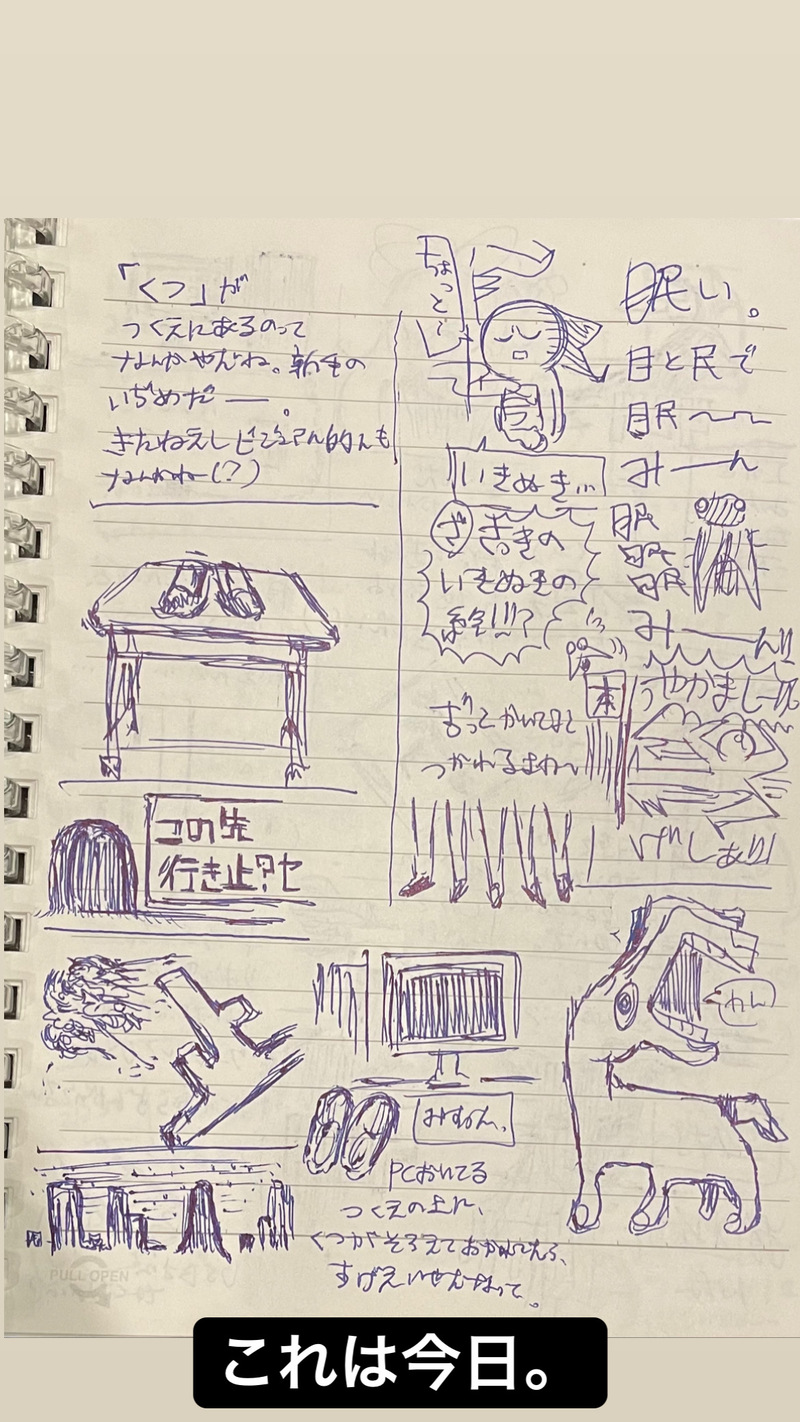 「くつ」が
つくえにあるのって
なんかやだね。新手の
いぢめだー。
きたねえしビジュアル的にも
なんかねー(?)
ちょっと…
いきぬき…
さっきの
いきぬきの
絵!!!?
眠い。
目と民で
眠〜〜
みーん
眠
眠
眠
みーーん!!
うやかましー
本
ずっとかいてると
つかれるよね〜
この先
行き止?セ
わん
みすてん。
PCおいてる
つくえの上に、
くつがそろえておかれてたら、
すげえいやだなって。
PULL OPEN
これは今日。